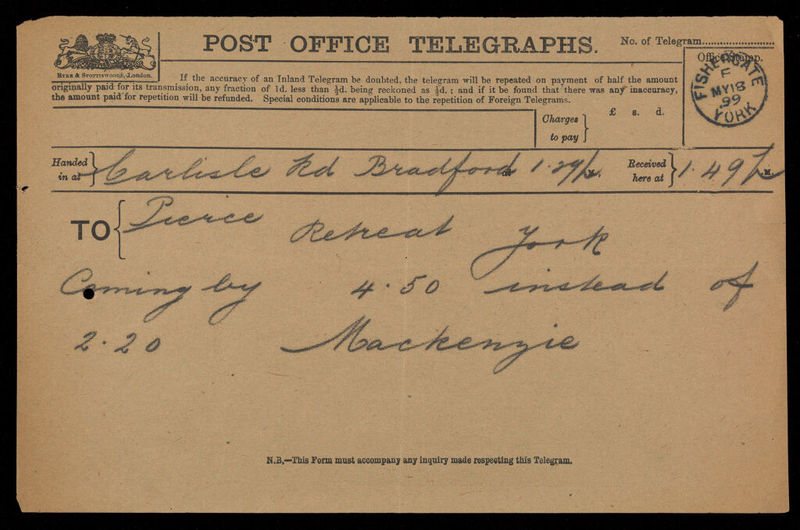 POST OFFICE TELEGRAPHS.
No. of Telegram
Eyre & Spottiswoode, London.
Office Stamp.
FISHERGATE
F
MY 18
99
YORK
If the accuracy of an Inland Telegram be doubted, the telegram will be repeated on payment of half the amount
originally paid for its transmission, any fraction of 1d. less than ½d. being reckoned as ½d.; and if it be found that there was any inaccuracy,
the amount paid for repetition will be refunded. Special conditions are applicable to the repetition of Foreign Telegrams.
Charges to pay } £ s. d.
Handed in at } Carlisle Rd Bradford at 1.29 p M. Received here at } 1.49 p M.
TO { Pierce Retreat York
Coming by 4.50 instead of
2.20 Mackenzie
N.B.—This Form must accompany any inquiry made respecting this Telegram.